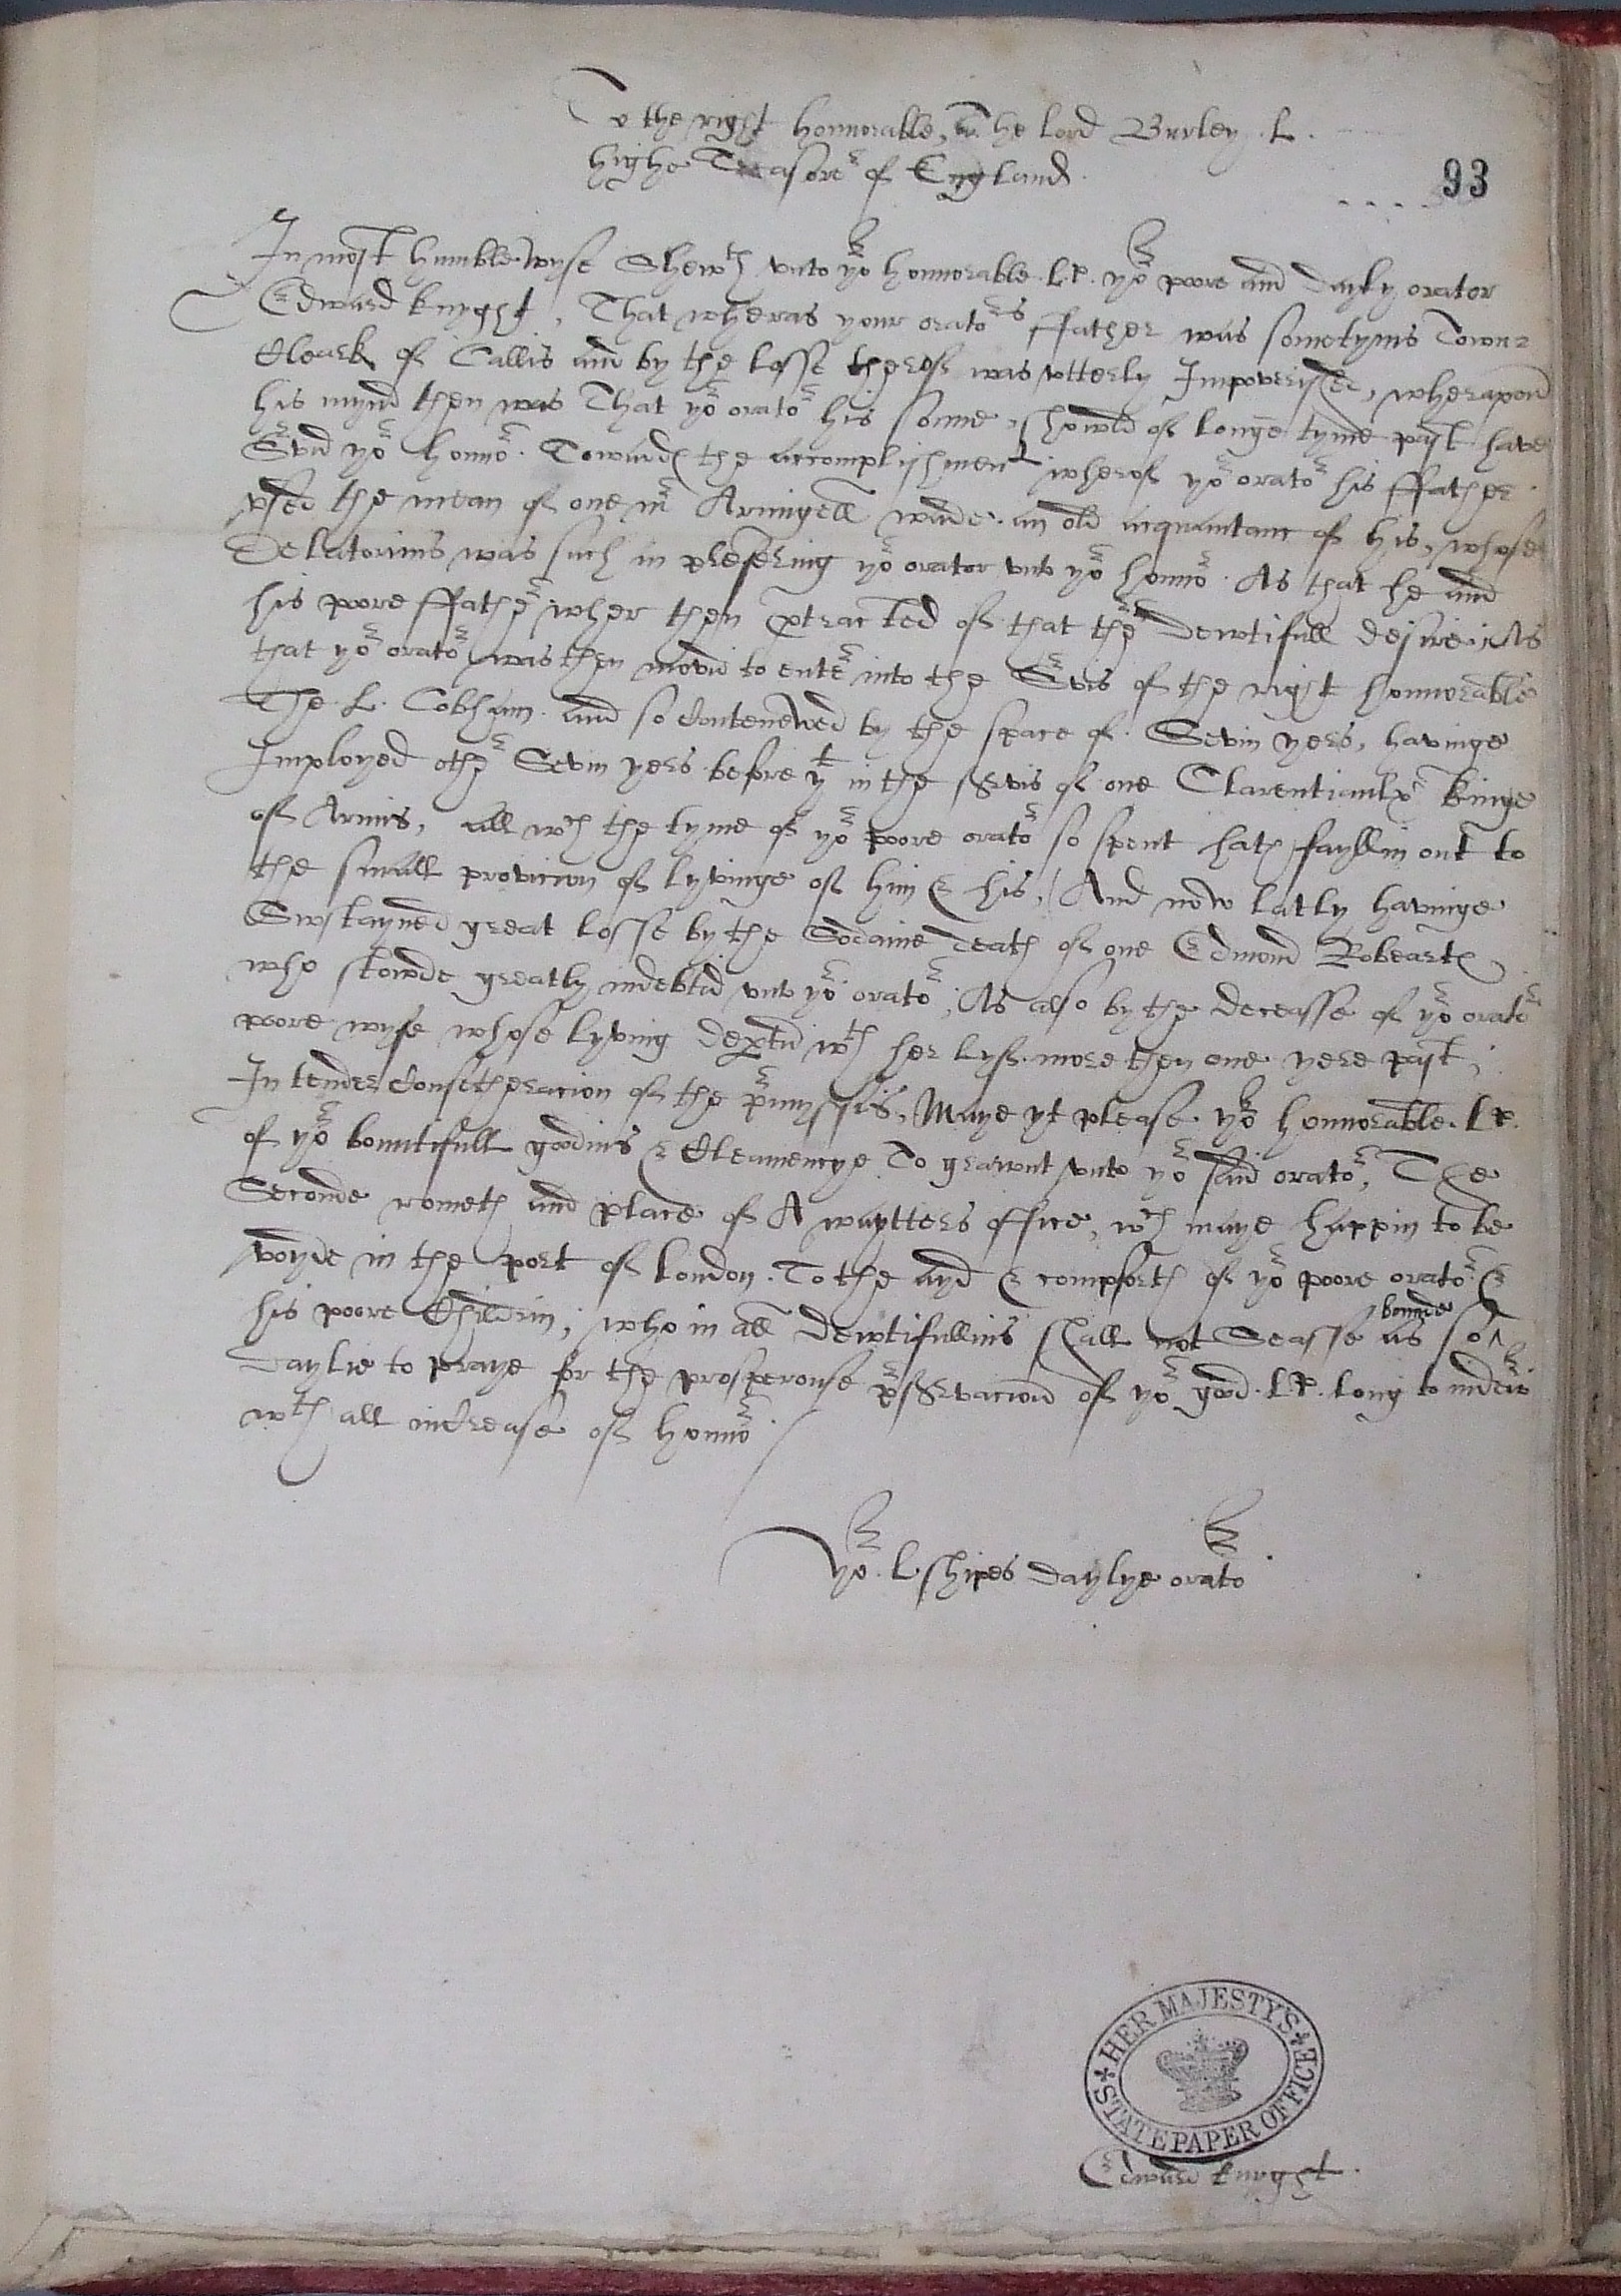 To the right honnorable, the lord Burley . L .
highe Treasore^r of England .
93
In most humble wyse Shew^th vnto yo^r honnorable . Lp . yo^r poore and dayly orator
Edward knyght , That wheras your orato^rs ffather was sometyms Towne
Cleark of Callis and by the losse therof was vtterly Impoverished , wherapond
his mynd then was That yo^r orato^r his sonne , showld of longe tyme past have
S^rvid yo^r honno^r . Towards the accomplishment wherof yo^r orato^r his ffather
vsed the mean of one m^r Armigell wade . an old acquaintanc of his , whose
Delatorims was such in prefering yo^r orator vnto yo^r honno^r . As that he and
his pore ffathe^r wher then protracted of that the^r dewtifull desire , As
that yo^r orato^r was then movid to ente^r into the S^rvis of the right honnorable
The . L . Cobham . and so contenewed by the space of . Sevin yers , havinge
Imployed othe^r Sevin yers before y^t in the servis of one Clarentiaulx kinge
of Armis , all w^ch the tyme of yo^r poore orato^r so spent hath fayllin out to
the small provicion of lyvinge of him & his , And now latly havinge
Swstayned great losse by the Sodaine death of one Edmond Robearts
who stowde greatly indebtid vnto yo^r orato^r , As also by the deceasse of yo^r orato^r
poore wyfe whose lyving depertid w^th her lyfe . more then one yere past ,
In tender consetheracion of the p^rmyssis , Maye yt please . yo^r honnorable . Lp .
of yo^r bountifull goodnis & Cleamencye To grawnt vnto yo^r said orato^r , The
Seconde rometh and place of A waytters office , w^ch maye happin to be
voyde in the port of london . To the ayd & comforth of yo^r poore orato^r &
his poore Childrin , who in all dewtifullnis shall not Seasse as so ^ bounde
daylie to praye for the prosperouse p^rservaciond of yo^r good . Lp . long to indew^r
w^th all increase of honno^r
yo^r . L . shipes daylye orato^r
HER MAJESTY'S STATE PAPER OFFICE
Edward knyght .